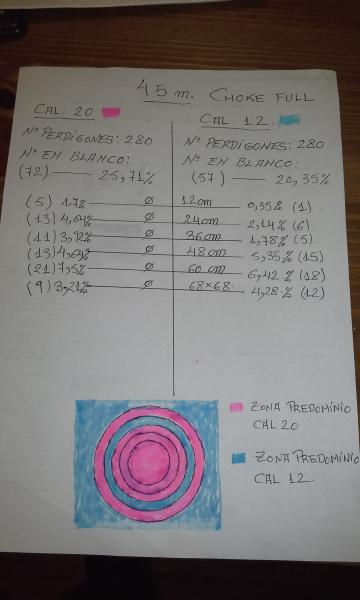 45 m. CHOKE FULL
CAL. 20 CAL 12.
Nº PERDIGONES: 280 Nº PERDIGONES: 280
Nº EN BLANCO: Nº EN BLANCO:
(72) — 25,71% (57) — 20,35%
(5) 1.7% Ø 12cm 0,35% (1)
(13) 4,64% Ø 24cm 2,14% (6)
(11) 3,92% Ø 36cm 1,78% (5)
(13) 4,64% Ø 48cm 5,35% (15)
(21) 7,5% Ø 60 cm 6,42% (18)
(9) 3,21% Ø 68x68. 4,28% (12)
ZONA PREDOMINIO
CAL 20
ZONA PREDOMINIO
CAL 12.